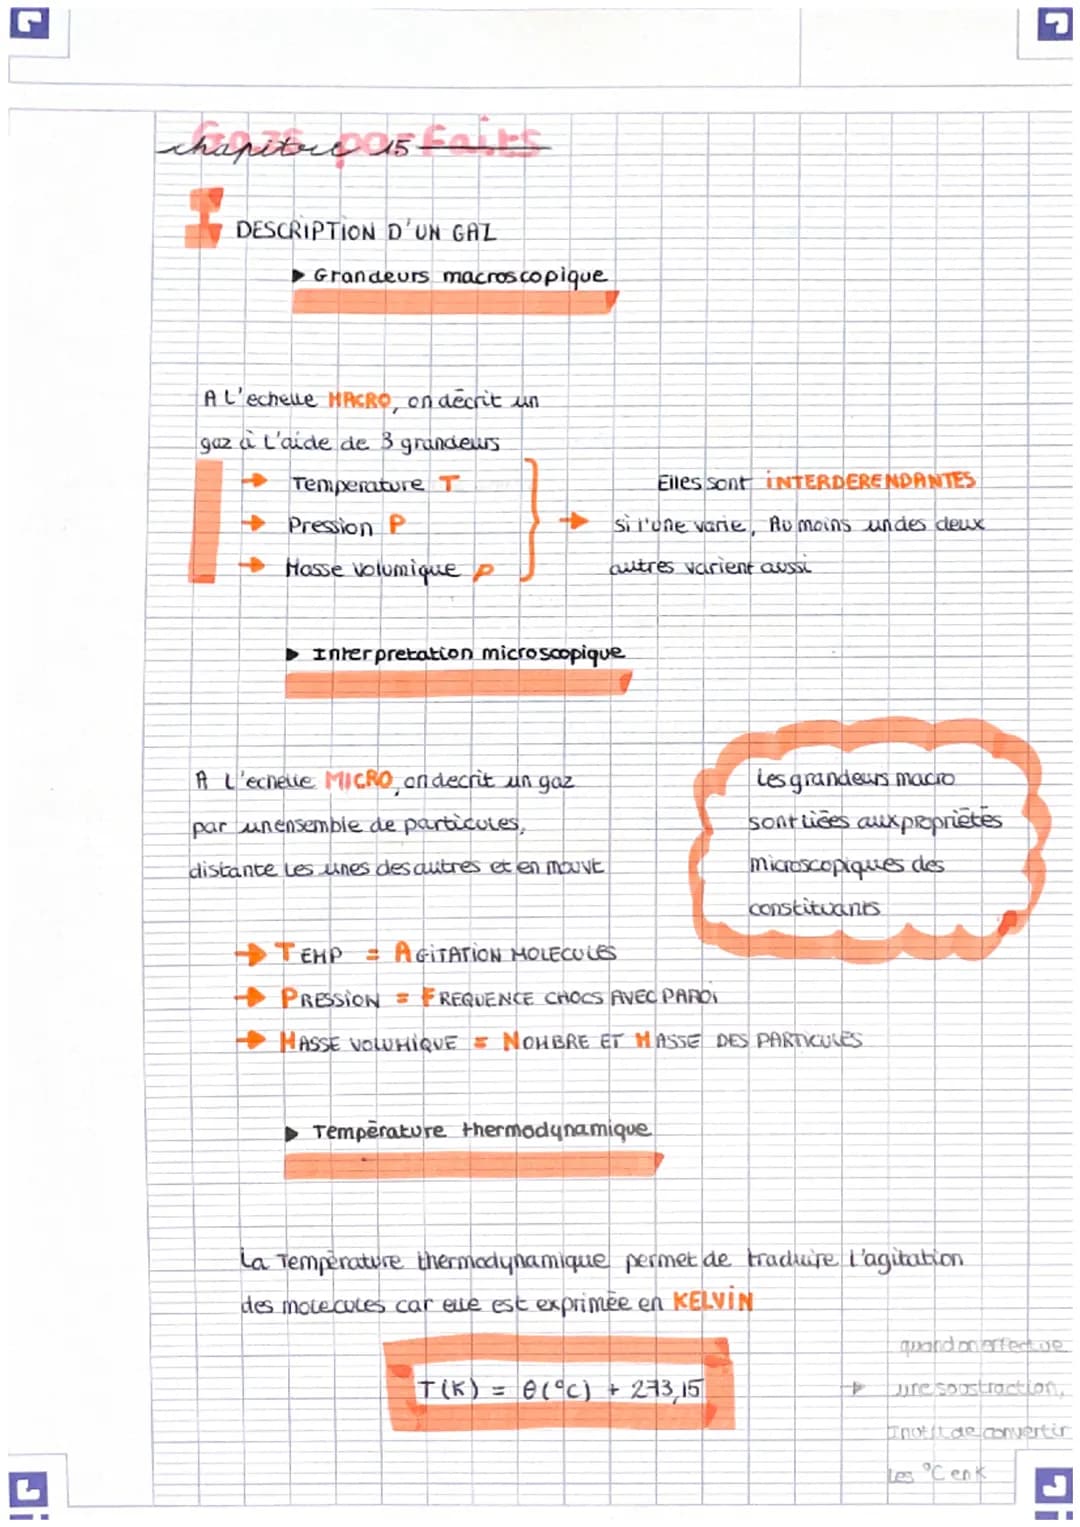 Gazs parfaits
chapitre 15
I DESCRIPTION D'UN GAZ
▸ Grandeurs macroscopique
A L'echelle MACRO, on décrit un
gaz à l'aide de 3 grandeurs
→ Temperature T
→ Pression P
→ Masse volumique ρ
→ Elles sont INTERDERENDANTES
si l'une varie, Au moins un des deux
autres varient aussi
▸ Interpretation microscopique
A L'echelle MICRO, on decrit un gaz
par un ensemble de particules,
distante les unes des autres et en mouvt
Les grandeurs macro
sont liées aux propriétés
microscopiques des
constituants
→ TEMP = AGITATION MOLECULES
→ PRESSION = FREQUENCE CHOCS AVEC PAROI
→ MASSE VOLUMIQUE = NOMBRE ET MASSE DES PARTICULES
▸ Température thermodynamique
La Température thermodynamique permet de traduire l'agitation
des molecules car elle est exprimée en KELVIN
T(K) = θ(°C) + 273,15
quand on effectue
→ une soustraction,
Inutil de convertir
les °C en K